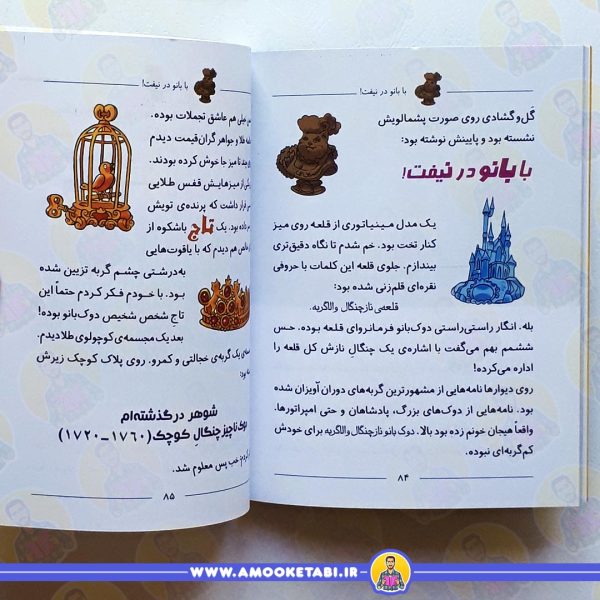 با بانو در نیفت!
گَل‌و‌گشادی روی صورت پشمالویش
نشسته بود و پایینش نوشته بود:
با بانو در نیفت!
یک مدل مینیاتوری از قلعه روی میز
کنار تخت بود. خم شدم تا نگاه دقیق‌تری
بیندازم. جلوی قلعه این کلمات با حروفی
نقره‌ای قلم‌زنی شده بود:
قلعه‌ی نازچنگال والاگربه
بله. انگار راستی‌راستی دوک‌بانو فرمانروای قلعه بوده. حس
ششمم بهم می‌گفت با اشاره‌ی یک چنگال نازش کل قلعه را
اداره می‌کرده!
روی دیوارها نامه‌هایی از مشهورترین گربه‌های دوران آویزان شده
بود. نامه‌هایی از دوک‌های بزرگ، پادشاهان و حتی امپراتورها.
واقعاً هیجان خونم زده بود بالا. دوک بانو نازچنگال والاگربه برای خودش
کم‌گربه‌ای نبوده.
۸۴
با بانو در نیفت!
خیلی هم عاشق تجملات بوده.
طلا و جواهر گران‌قیمت دیدم
چند تا میز جا خوش کرده بودند.
از میزهایش قفس طلایی
قرار داشت که پرنده‌ی تویش
بود. یک تاج باشکوه از
هم دیدم که با یاقوت‌هایی
به‌درشتی چشم گربه تزیین شده
بود. با خودم فکر کردم حتماً این
تاج شخص شخیص دوک‌بانو بوده!
بعد یک مجسمه‌ی کوچولوی طلا دیدم.
یک گربه‌ی خجالتی و کمرو. روی پلاک کوچک زیرش
شوهر درگذشته‌ام
ناچیز چنگالِ کوچک (۱۷۶۰-۱۷۲۰)
خب پس معلوم شد.
۸۵
WWW.AMOOKETABI.IR